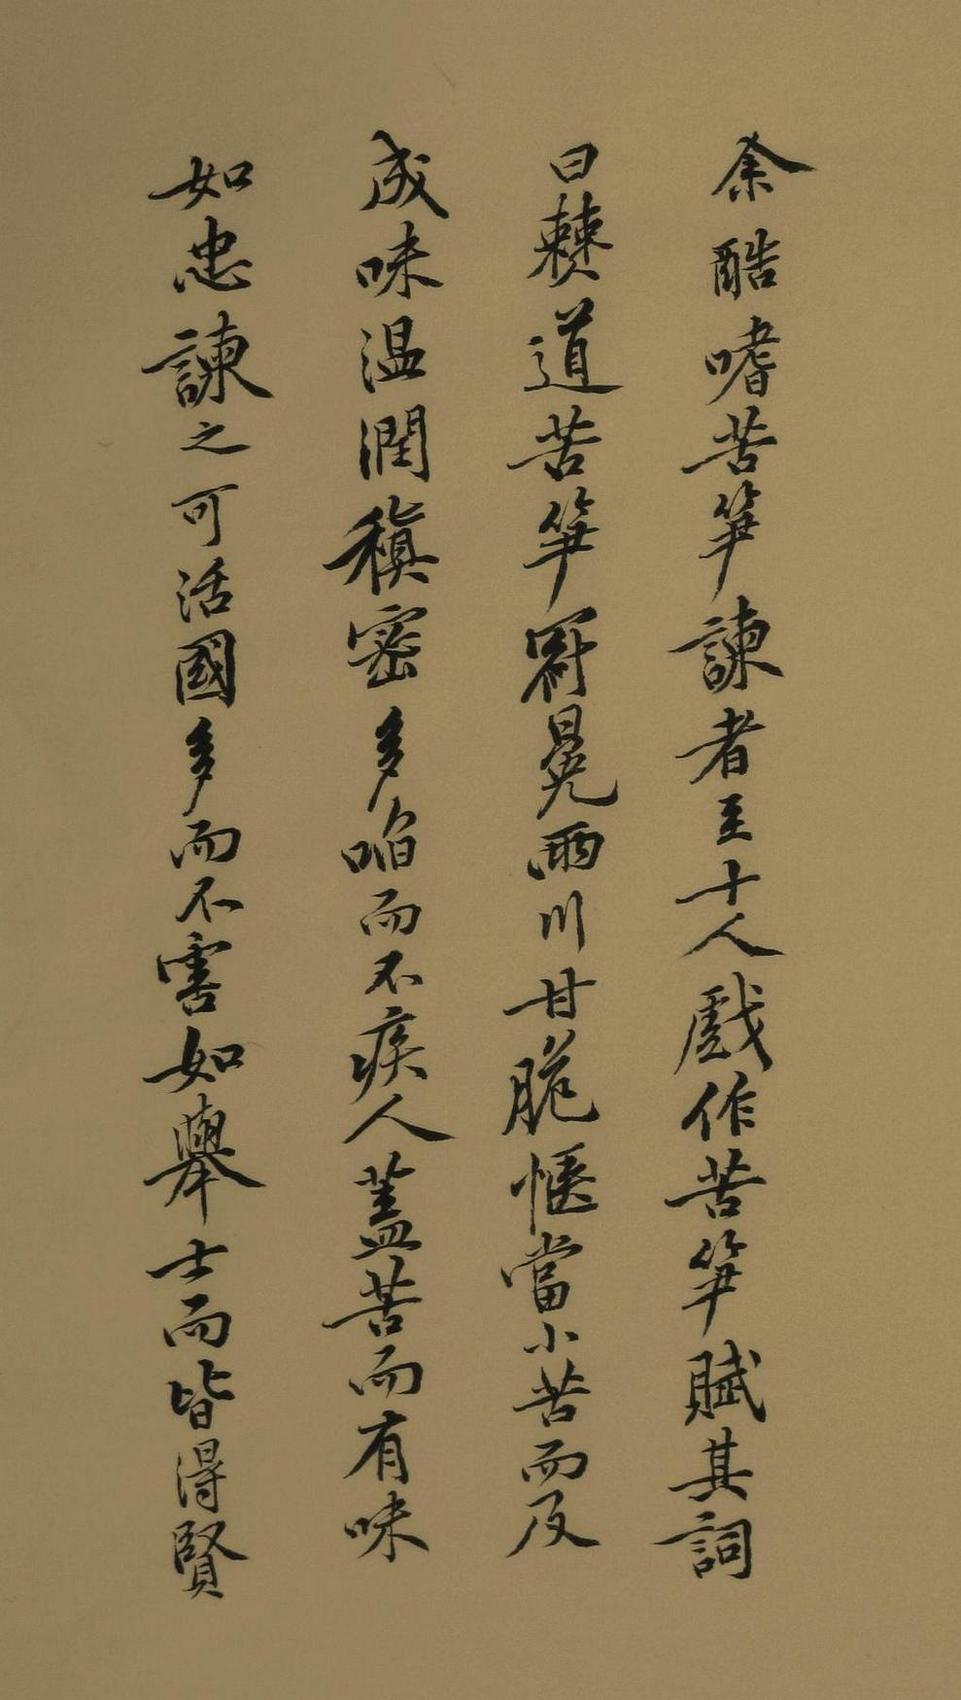 余酷嗜苦笋諫者至十人戲作苦笋賦其詞
曰僰道苦笋冠冕兩川甘脆愜當小苦而反
成味溫潤稹密多啗而不疾人蓋苦而有味
如忠諫之可活國多而不害如舉士而皆得賢